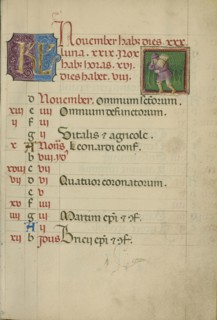 KL November habꝫ dies xxx.
luna . xxix. Nox
habꝫ horas . xvi.
dies habet . viii.
d November. Omnium sctorum.
xiii e iiii Omnium defunctorum.
ii f iii
g ii Vitalis et agricole.
x A Nonis Leonardi conf.
b viii
xviii c vii
vii d vi Quatuor coronatorum.
e v
xv f iiii
iiii g iii Martini epi et 9f.
A ii
xii b Idus Bricii epi et 9f.